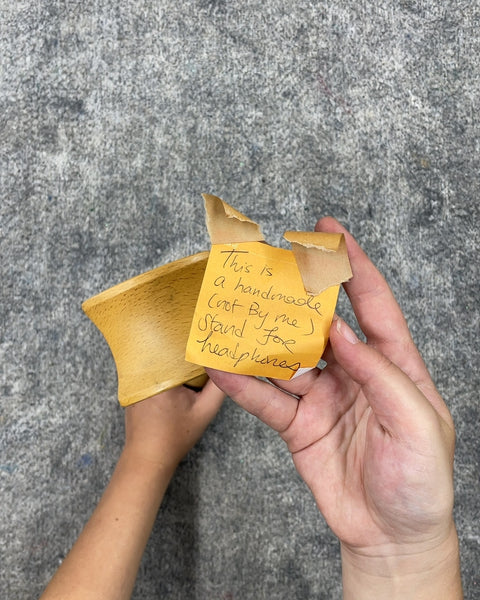 This is
a handmade
(not By me)
Stand for
headphones